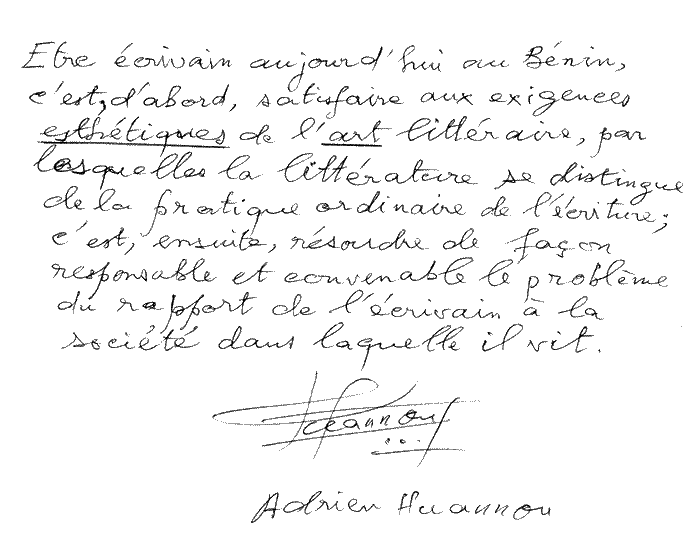 Etre écrivain aujourd'hui au Bénin,
c'est, d'abord, satisfaire aux exigences
esthétiques de l'art littéraire, par
lesquelles la littérature se distingue
de la pratique ordinaire de l'écriture;
c'est, ensuite, résoudre de façon
responsable et convenable le problème
du rapport de l'écrivain à la
société dans laquelle il vit.
Huannou
Adrien Huannou